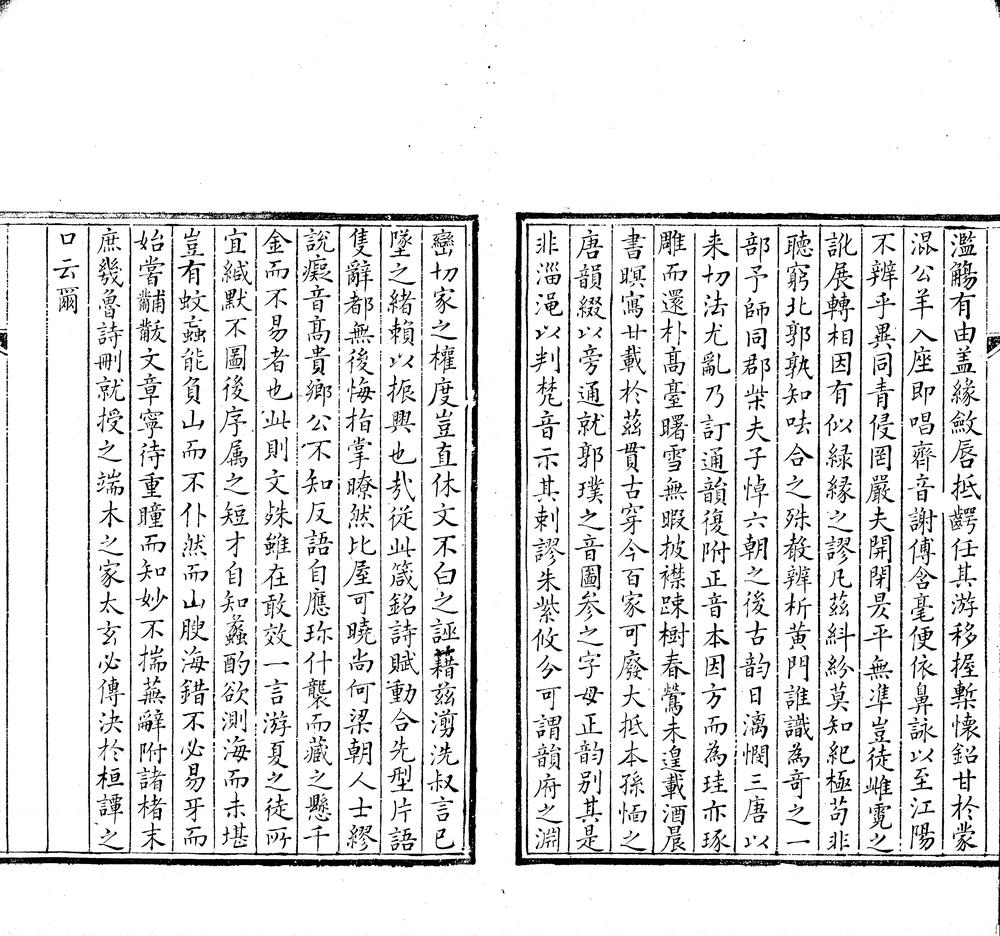 濫觴有由盖緣斂唇抵齶任其游移握槧懷鉛甘於蒙
混公羊入座即唱齊音謝傅含毫便依鼻詠以至江陽
不辨乎異同青侵罔嚴夫開閉昃平無準豈徒雌霓之
訛展轉相因有似緑縁之謬凡茲糾紛莫知紀極苟非
聽窮北郭孰知呿合之殊教辨析黄門誰識為奇之一
部予師同郡柴夫子悼六朝之後古韵日漓憫三唐以
来切法尤亂乃訂通韻復附正音本因方而為珪亦琢
雕而還朴髙臺曙雪無暇披襟踈樹春鶯未遑載酒晨
書暝寫廿載於茲貫古穿今百家可廢大抵本孫愐之
唐韻綴以旁通就郭璞之音圖参之字母正韵别其是
非淄渑以判梵音示其刺謬朱紫攸分可謂韻府之淵
巒切家之權度豈直休文不白之誣藉茲湔洗叔言已
墜之緒賴以振興也㢤從此箴銘詩賦動合先型片語
隻辭都無後悔指掌瞭然比屋可曉尚何梁朝人士繆
說癡音髙貴鄉公不知反語自應珎什襲而藏之懸千
金而不易者也此則文殊雖在敢效一言游夏之徒所
宜緘默不圖後序属之短才自知蠡酌欲測海而未堪
豈有蚊䖟能負山而不仆然而山膄海錯不必易牙而
始嘗黼黻文章寧待重瞳而知妙不揣蕪辭附諸楮末
庶幾魯詩刪就授之端木之家太玄必傳決於桓譚之
口云爾